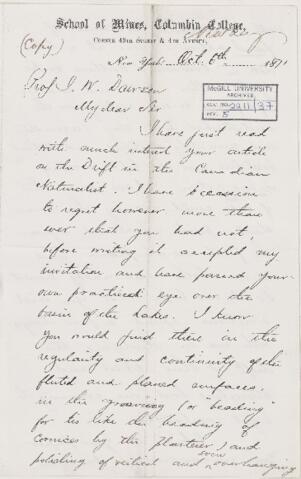 School of Mines, Columbia College,
Corner 49th Street & 4th Avenue,
(Copy)
Newberry
New York, Oct. 6th 1871
McGILL UNIVERSITY
ARCHIVES
ACC. NO. 2211/37
REF. 5
Prof. J. W. Dawson
My dear Sir
I have just read
with much interest your article
on the Drift in the Canadian
Naturalist. I have occasion
to regret however more than
ever that you had not,
before writing it accepted my
invitation and have passed your
own practiced eye over the
basin of the Lakes. I know
you would find there in the
regularity and continuity of the
fluted and planed surfaces,
in the grooving (or "beading"
for its like the beading of
cornices by the plasterer) and
polishing of vertical and even overhanging